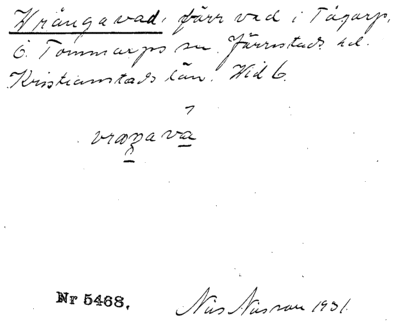 Wrångavad, förr vad i Tågarp,
Ö. Tommarps sn. Järrestads hd.
Kristianstads län. Wid 6.
vraŋava
Nr 5468.
Nils 1931.